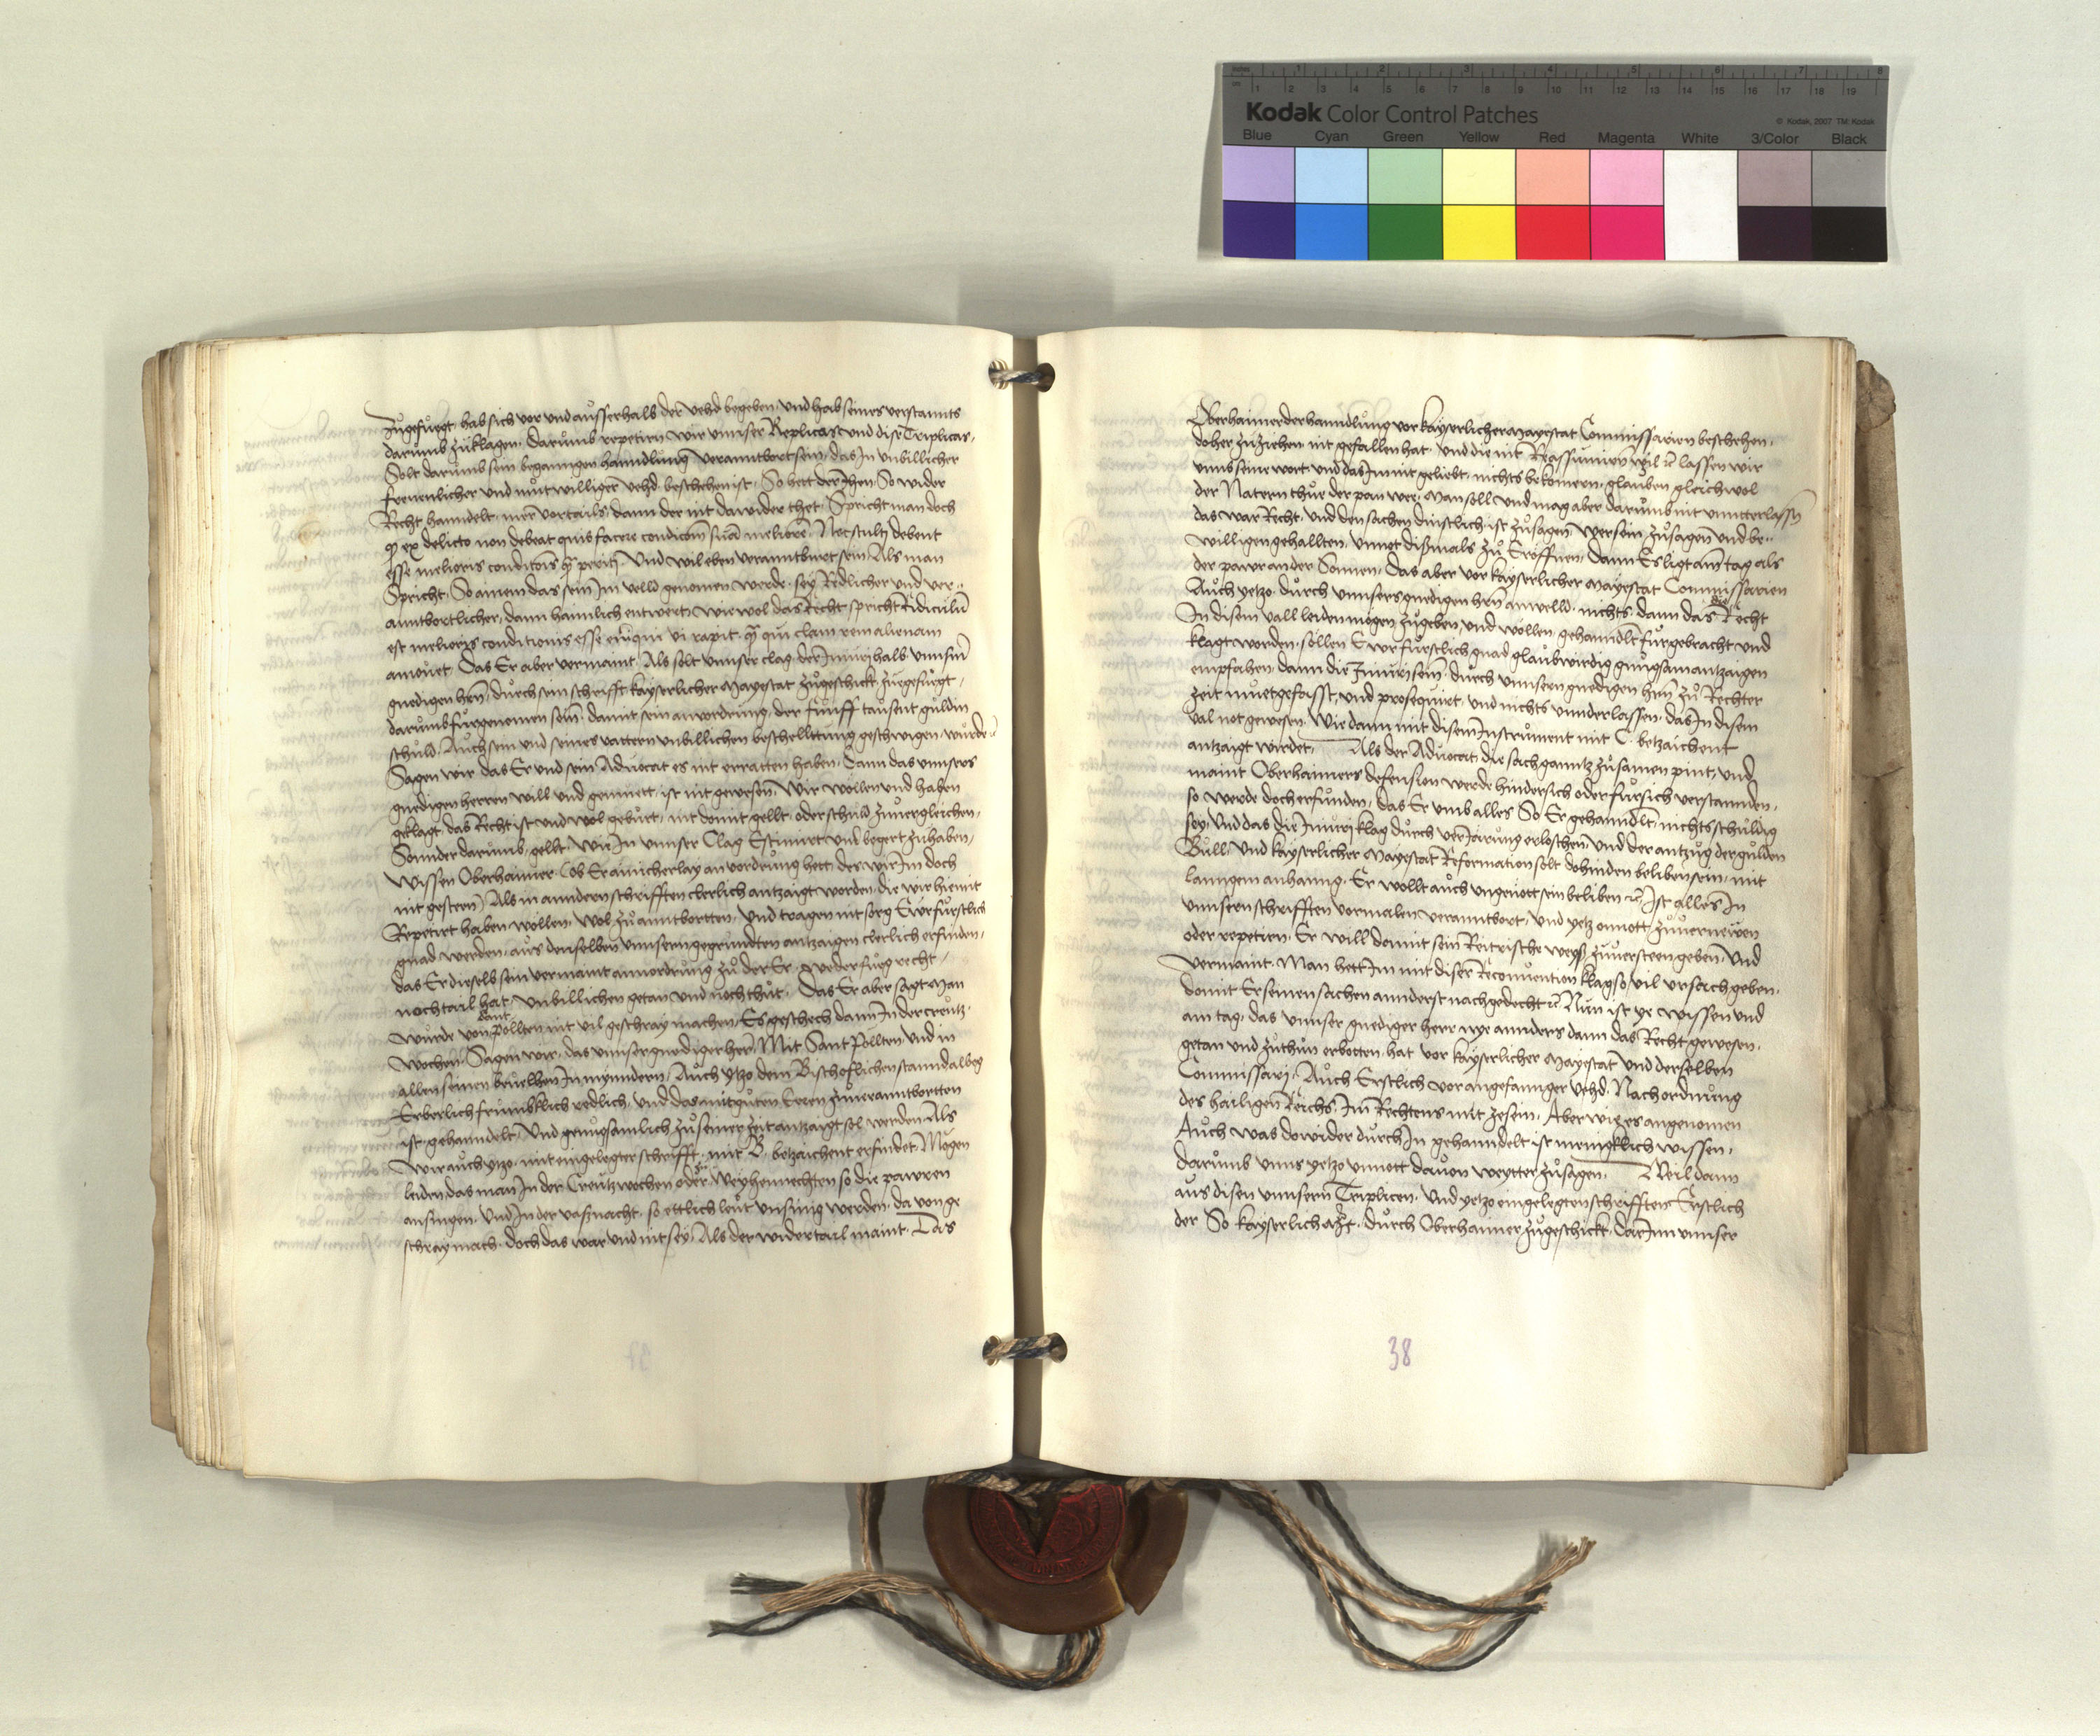 Kodak Color Control Patches
© Kodak, 2007 TM: Kodak
Blue Cyan Green Yellow Red Magenta White 3/Color Black
zuͦgefuͤegt, hab sich vor und ausserhalb der vehd begeben, und hab seines verstannts
darumb zuklagen, Darumb repetirn wir unnser Replicas und dise Triplicas,
Solt darumb sein beganngen hanndlung veranntbort sein, das In unbillicher
freuenlicher und mutwilliger vehd beschehen ist, So hett der Ihen So wider
Recht hanndelt, mer vortails, dann der nit dawider thet, Spricht man doch
ꝙ ex delicto non debeat quis facere condicioñ suã meliorẽ, Nec stulti debent
esse melioris condicõis ꝙ̃ periti, Und wil eben veranntburt sein, Als man
Spricht, So ainem das sein Im velld genomen werde, sey Redlicher und ver-
anntbortlicher, dann haimlich entwert, wiewol das Recht spricht Ridiculũ
est melioris conditionis esse eũ qui vi rapit, ꝙ̃ qui clam rem alienam
amouet, Das Er aber vermaint, Als solt unnser clag, der Iniuri halb, unnserm
gnedigen hern̄, durch sein schrifft kayserlicher Mayestat zuͦgeschickt, zuegefuegt,
darumb furgenomen sein, damit sein anvordrung, der funff tausent guldin
schuld, Auch sein und seines vattern unbillichen beschelltung geschwigen, wurde ꝛc
Sagen wir, das Er und sein Aduocat es nit erratten haben, dann das unnsers
gnedigen herren will und gemuett, ist nit gewesen, Wir wollen und haben
geklagt, das Recht ist und wol geburt, nit domit gellt, oder schuld zuuergleichen,
Sonnder darumb, gellt, wir In unnser Clag Estimirt, und begert zuhaben,
Wissen Oberhaimer (ob Er ainicherlay anvordrung hett, der wir Im doch
nit gesteen) Als in anndern schrifften clerlich antzaigt worden, die wir hiemit
Repetirt haben wollen, wol zuͦ anntbortten, Und tragen nit sorg Ewr furstlich
gnad werden, aus denselben unnsern gegrundten antzaigen clerlich erfinden,
das Er dieselb sein vermaint annordrung, zuͦ der Er, weder fueg recht,
noch tail hat, unbillichen getan und noch thut, Das Er aber sagt Man
wurde von sant pollten nit vil geschray machen, Es geschech dann In der creutz-
wochen, Sagen wir, das unnser gnediger her, Mit Sant pollten, und in
allen seinen beuelhen In mynndern, Auch ytzo dem Bischoflichen stannd alweg
Erberlich frumbklich redlich, und das mit guten Eeren zuuerantbortten
ist, gehanndelt, Und genugsamlich zuͦ seiner zeit antzaigt sol werden, Als
Wir auch ytzo, mit eingelegter schrifft, mit B, betzaichent erfindet, Mogen
leiden, das man In der Creutzwochen oder zu Weyhennechten so die pawren
ansingen, Und In der vasznacht, so ettlich leut unsynnig werden, da von ge-
schray mach, doch das war und nit sey, Als der widertail maint, Das
Oberhaimer der hanndlung vor kayserlicher Mayestat Commissarien beschehen,
doher zuziehen, nit gefallen hat, und die nit Reassumiern wil ꝛc lassen wir
unns seine wort und das Im nit geliebt, nichts bekomern, glauben gleichwol
der Natern thur der pan wee, Man soll und mag aber darumb nit unnterlassen
das war Recht, und den sachen dinstlich ist, zuͦsagen, wer sein zuͦsagen und be-
willigen gehallten, unnot diszmals zuͦ Eroffnen, dann Es ligt am tag als
der pawr an der Sonnen, das aber vor kayserlicher Mayestat Commissarien
Auch yetzo, durch unnsers gnedigen hern̄ anwelld, nichts, dann das die Recht
In disem vall leiden mogen zuͦgeben, und wollen, gehanndlt, furgebracht und
klagt worden, sollen Ewr furstlich gnad glaubwirdig gnugsam antzaigen
empfahen, dann die Iniuri sein, durch unnsern gnedigen hern̄ zuͦ Rechter
zeit muͤetgefasst, und prosequirt, und nichts unnderlassen, das In disem
val not gewesen, Wie dann mit disem Instrument mit C. betzaichent
antzaigt wirdet, Als der Aduocat, die sach ganntz zuͦsamen pint, und
maint Oberhaimers defension werde hindersich oder fursich verstannden,
so werde doch erfunden, das Er umb alles So Er gehanndlt, nichts schuldig
sey, Und das die Iniuri klag durch verIarung erloschen, und der antzug der gulden
Bull, Und kayserlicher Mayestat Reformation solt dohinden beliben sein, mit
lanngem anhanng, Er wollt auch ungenott sein beliben ꝛc Ist alles In
unnsern schrifften vormalen verantbort, Und yetz onnott zuͦuernewen
oder repetirn, Er will domit sein Reitrische weysz zuuersteen geben, Und
vermaint, Man hett Im mit diser Reconuention klag so vil ursach geben,
domit Er seinen sachen annderst nachgedecht ꝛc Nun ist ye wissen und
am tag, das unnser gnediger herr nye annders dann das Recht gewesen,
getan und zuthun erbotten, hat vor kayserlicher Mayestat und derselben
Commissari, Auch Erstlich vor angefannger Vehd, Nach ordnung
des hailigen Reichs, Im Rechtens mit zesein, Aber wie es angenomen
Auch was dowider durch In gehanndelt ist menigklich wissen,
darumb unns yetzo unnott dauon weytter zuͦsagen, Weil dann
aus disen unnsern Triplicen, Und yetzo eingelegten schrifften Erstlich
der So kayserlich Mt, durch Oberhaimer zuͦgeschickt, darInn unnser
38